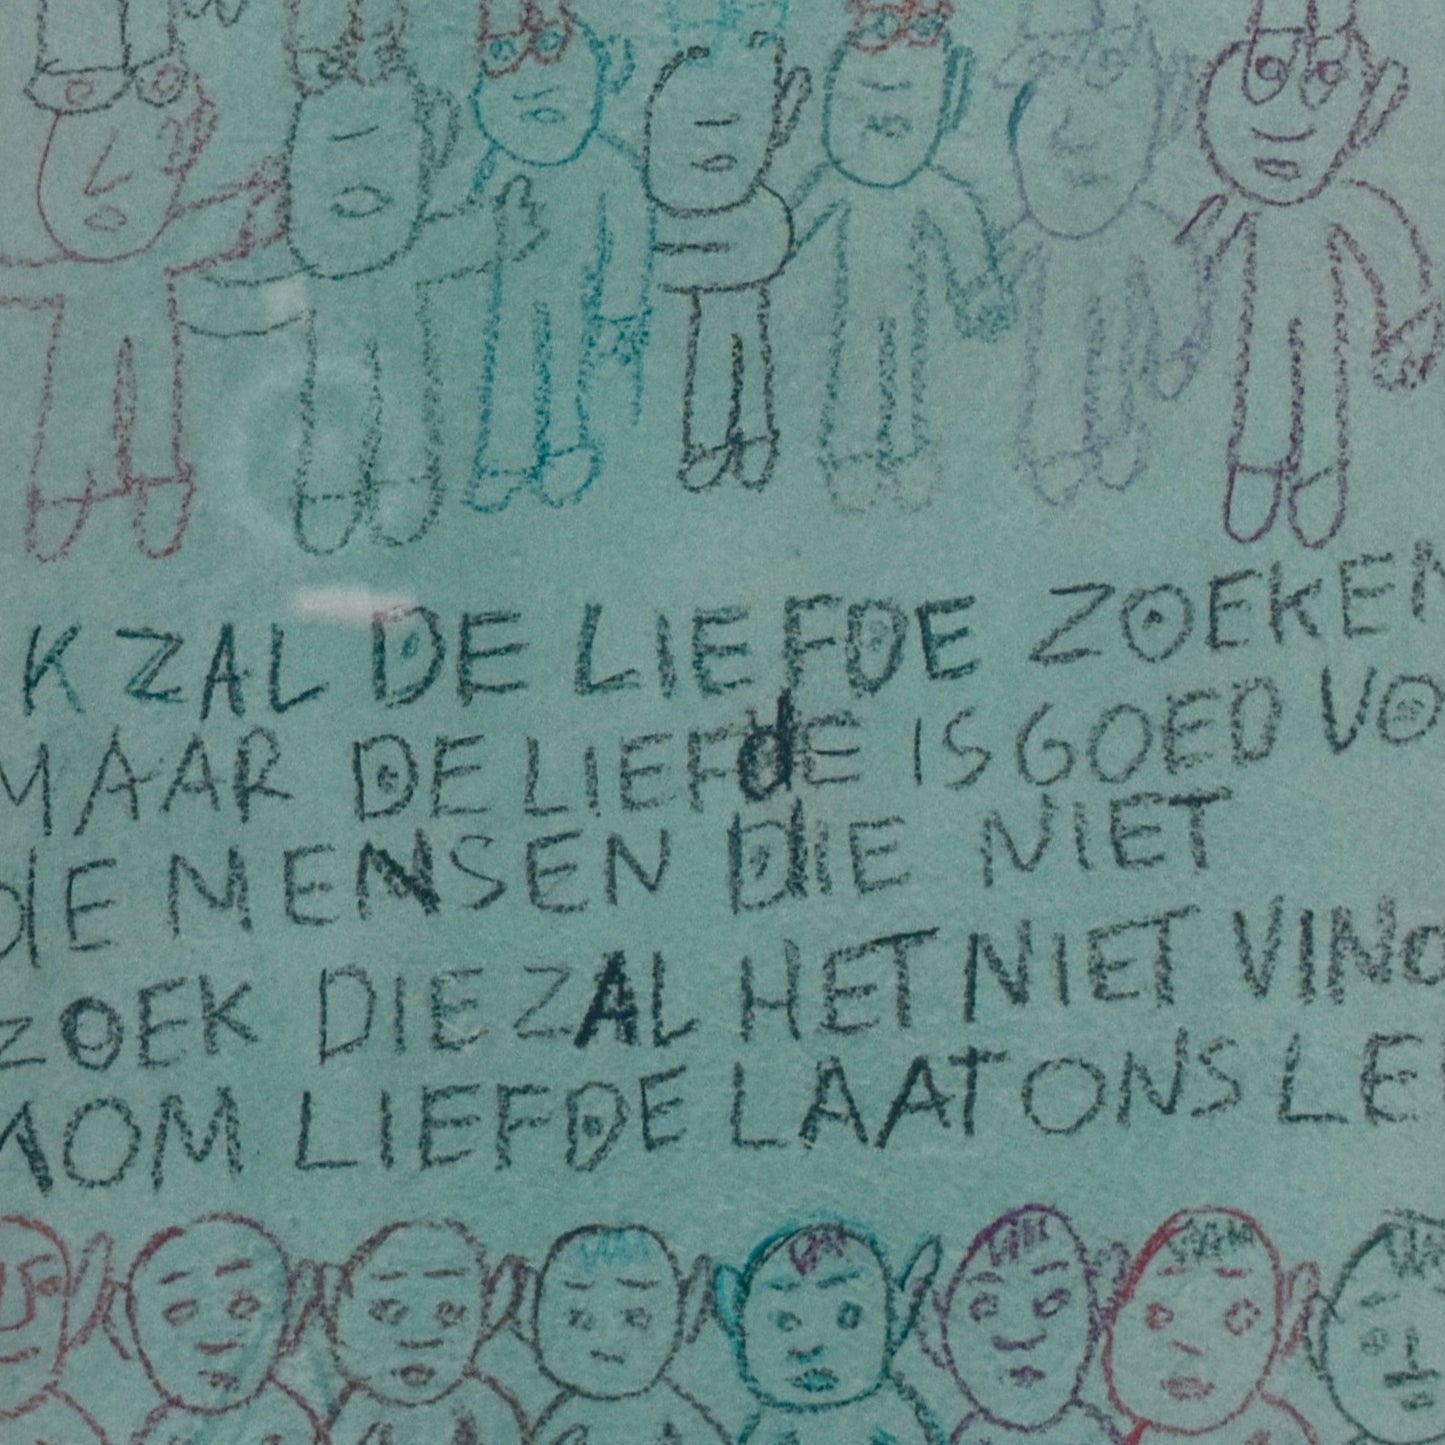 K ZAL DE LIEFDE ZOEKEN
MAAR DE LIEFdE IS GOED VO
DIE MENSEN DIE NIET
ZOEK DIE ZAL HET NIET VIND
OM LIEFDE LAAT ONS LE